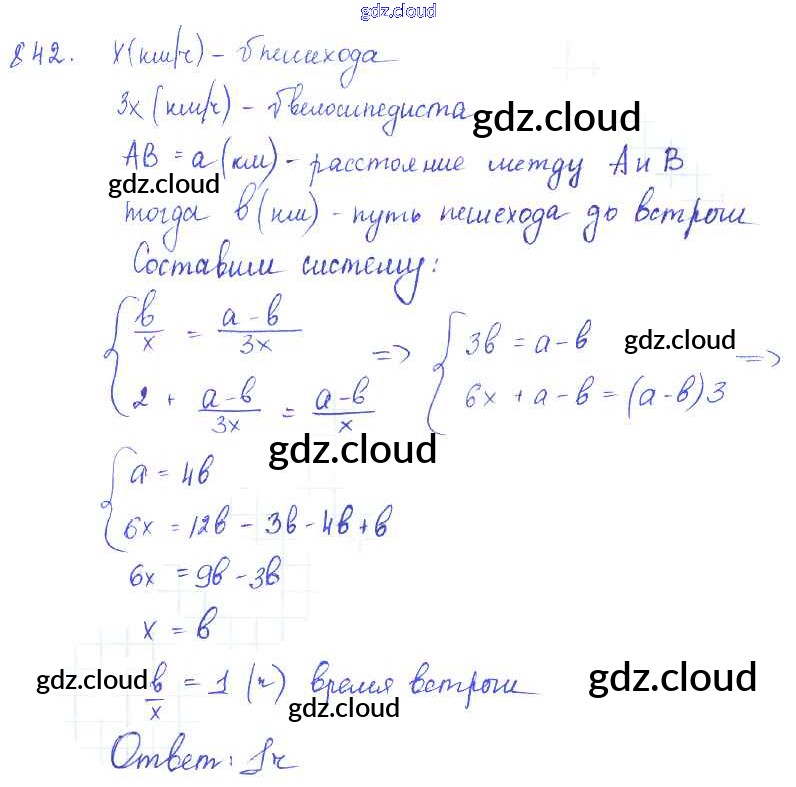 gdz.cloud
842. x (км/ч) – v пешехода
3x (км/ч) – v велосипедиста
gdz.cloud
AB = a (км) – расстояние между A и B
gdz.cloud
тогда b (км) – путь пешехода до встречи
Составим систему:
{ b/x = (a-b)/3x
2 + (a-b)/3x = (a-b)/x => { 3b = a-b
6x + a-b = (a-b)3 =>
gdz.cloud
gdz.cloud
{ a = 4b
6x = 12b - 3b - 4b + b
6x = 9b - 3b
x = b
gdz.cloud b/x = 1 (ч) время встречи gdz.cloud
gdz.cloud
Ответ: 1ч